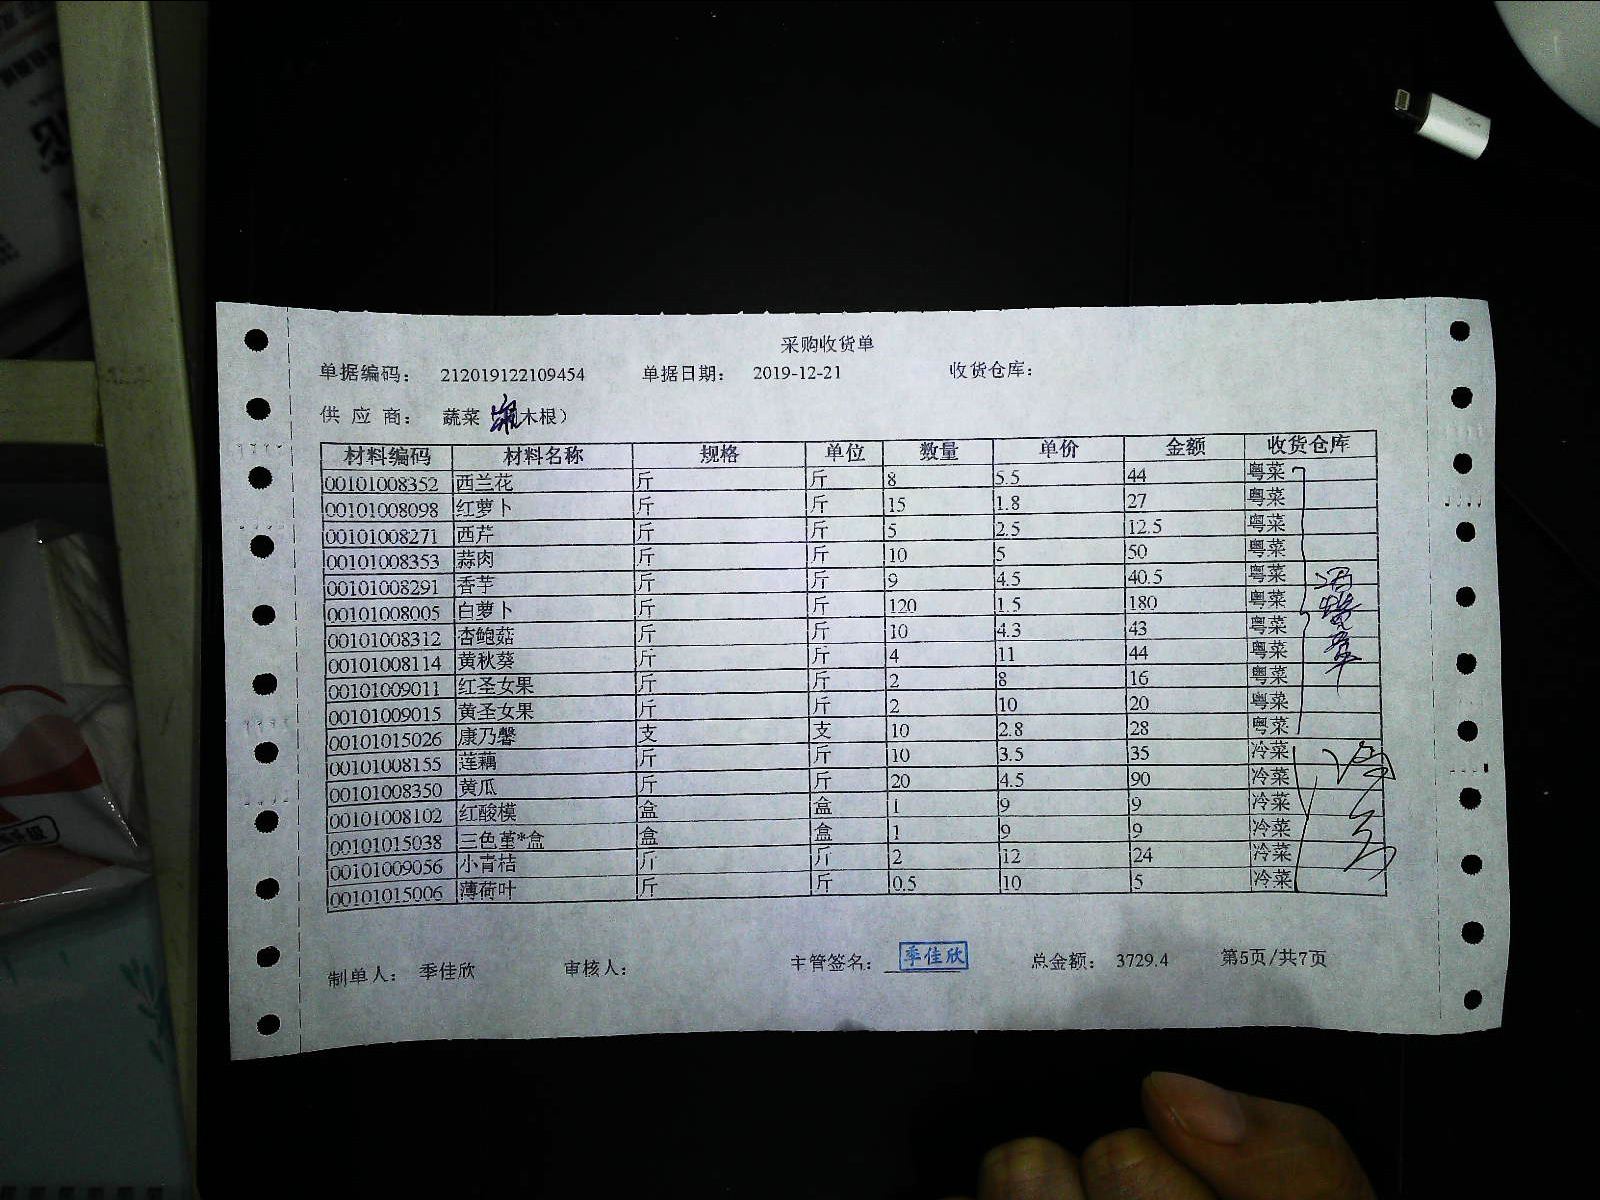 采购收货单
单据编码： 212019122109454 单据日期： 2019-12-21 收货仓库：
供 应 商： 蔬菜 木根）
材料编码 材料名称 规格 单位 数量 单价 金额 收货仓库
00101008352 西兰花 斤 斤 8 5.5 44 粤菜
00101008098 红萝卜 斤 斤 15 1.8 27 粤菜
00101008271 西芹 斤 斤 5 2.5 12.5 粤菜
00101008353 蒜肉 斤 斤 10 5 50 粤菜
00101008291 香芋 斤 斤 9 4.5 40.5 粤菜
00101008005 白萝卜 斤 斤 120 1.5 180 粤菜
00101008312 杏鲍菇 斤 斤 10 4.3 43 粤菜
00101008114 黄秋葵 斤 斤 4 11 44 粤菜
00101009011 红圣女果 斤 斤 2 8 16 粤菜
00101009015 黄圣女果 斤 斤 2 10 20 粤菜
00101015026 康乃馨 支 支 10 2.8 28 粤菜
00101008155 莲藕 斤 斤 10 3.5 35 冷菜
00101008350 黄瓜 斤 斤 20 4.5 90 冷菜
00101008102 红酸模 盒 盒 1 9 9 冷菜
00101015038 三色堇*盒 盒 盒 1 9 9 冷菜
00101009056 小青桔 斤 斤 2 12 24 冷菜
00101015006 薄荷叶 斤 斤 0.5 10 5 冷菜
制单人： 季佳欣 审核人： 主管签名： 季佳欣 总金额： 3729.4 第5页/共7页